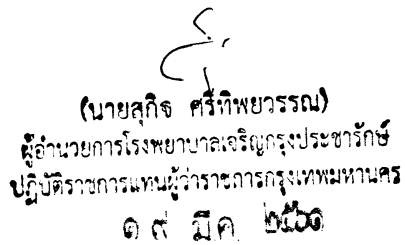 (นายสุกิจ ศรีทิพยวรรณ)
ผู้อำนวยการโรงพยาบาลเจริญกรุงประชารักษ์
ปฏิบัติราชการแทนผู้ว่าราชการกรุงเทพมหานคร
๑๙ มีค ๒๕๖๑